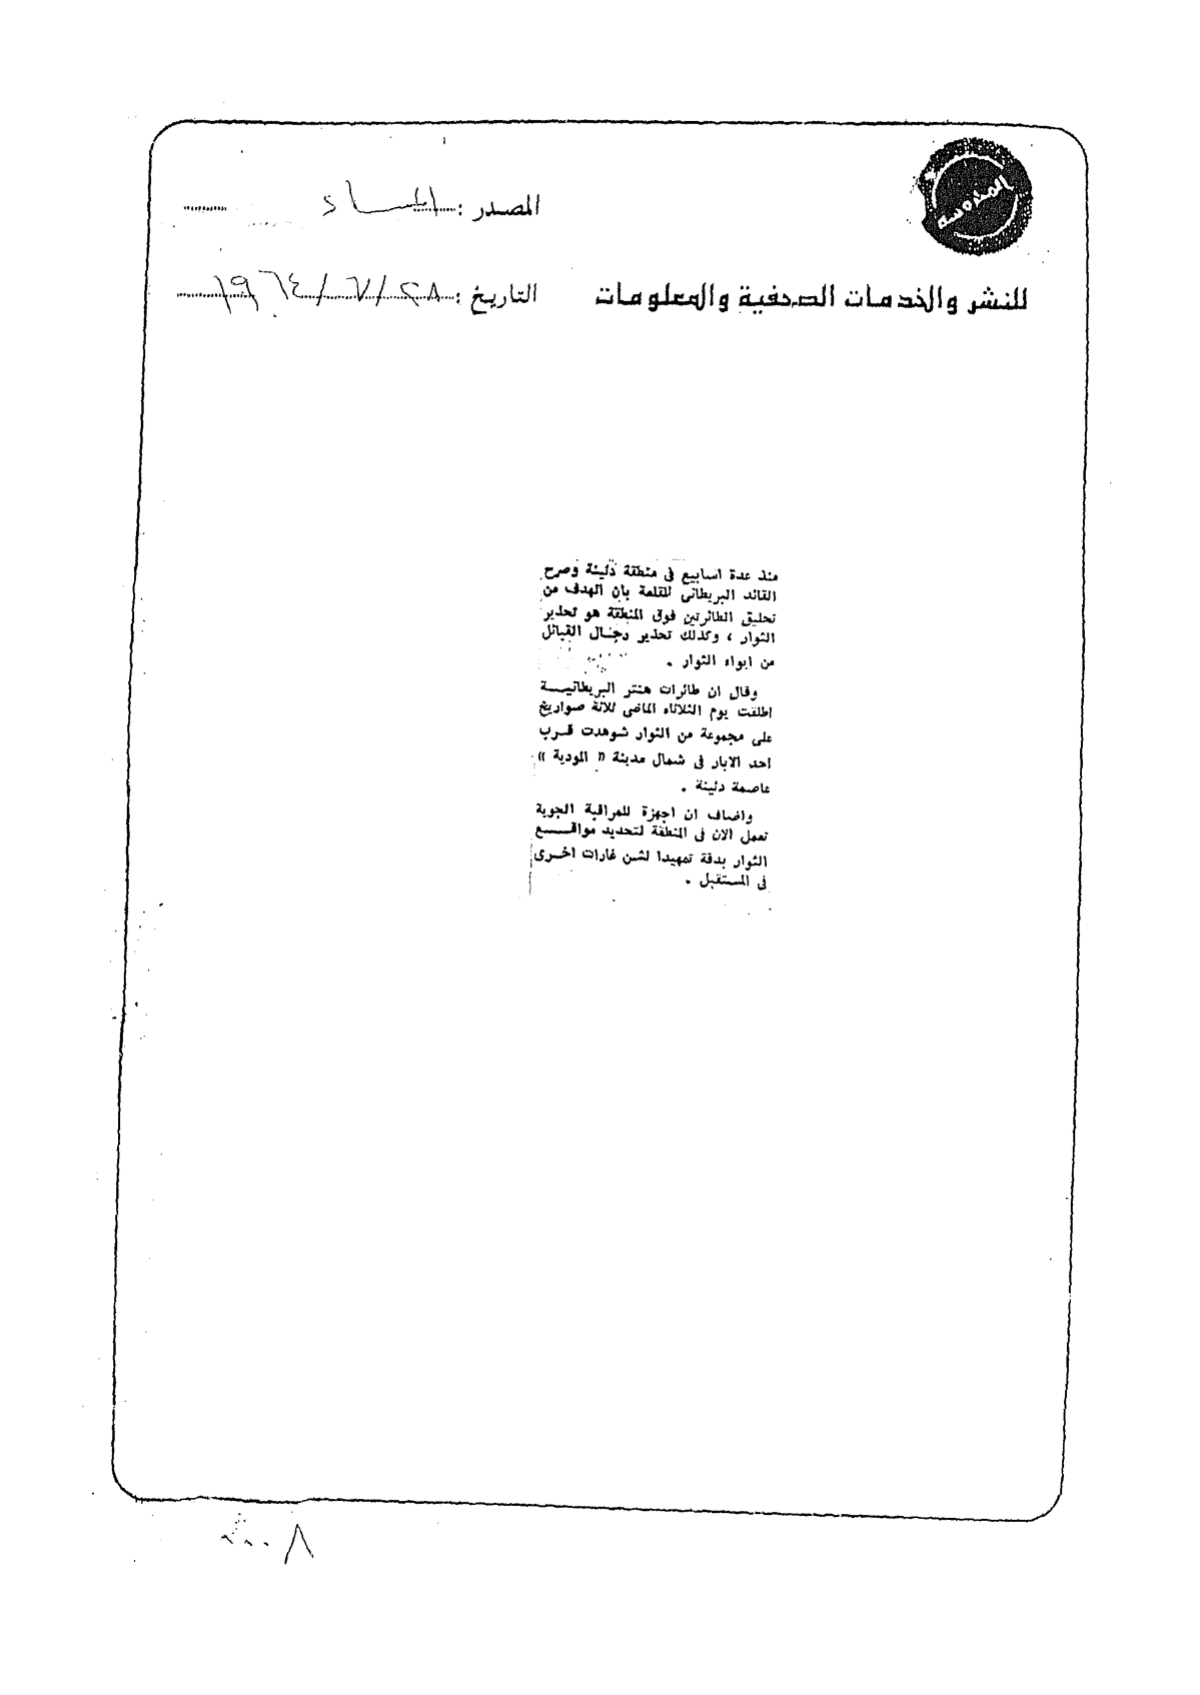 المحروسة
المصدر : المساء
للنشر والخدمات الصحفية والمعلومات
التاريخ : ٢٨/٧/١٩٦٤
منذ عدة اسابيع فى منطقة دلينة وصرح
القائد البريطانى للقلعة بان الهدف من
تحليق الطائرتين فوق المنطقة هو تحذير
الثوار ، وكذلك تحذير رجال القبائل
من ايواء الثوار .
وقال ان طائرات هنتر البريطانيـــة
اطلقت يوم الثلاثاء الماضى ثلاثة صواريخ
على مجموعة من الثوار شوهدت قـرب
احد الابار فى شمال مدينة « المودية »
عاصمة دلينة .
واضاف ان اجهزة للمراقبة الجوية
تعمل الان فى المنطقة لتحديد مواقـــع
الثوار بدقة تمهيدا لشن غارات اخـرى
فى المستقبل .